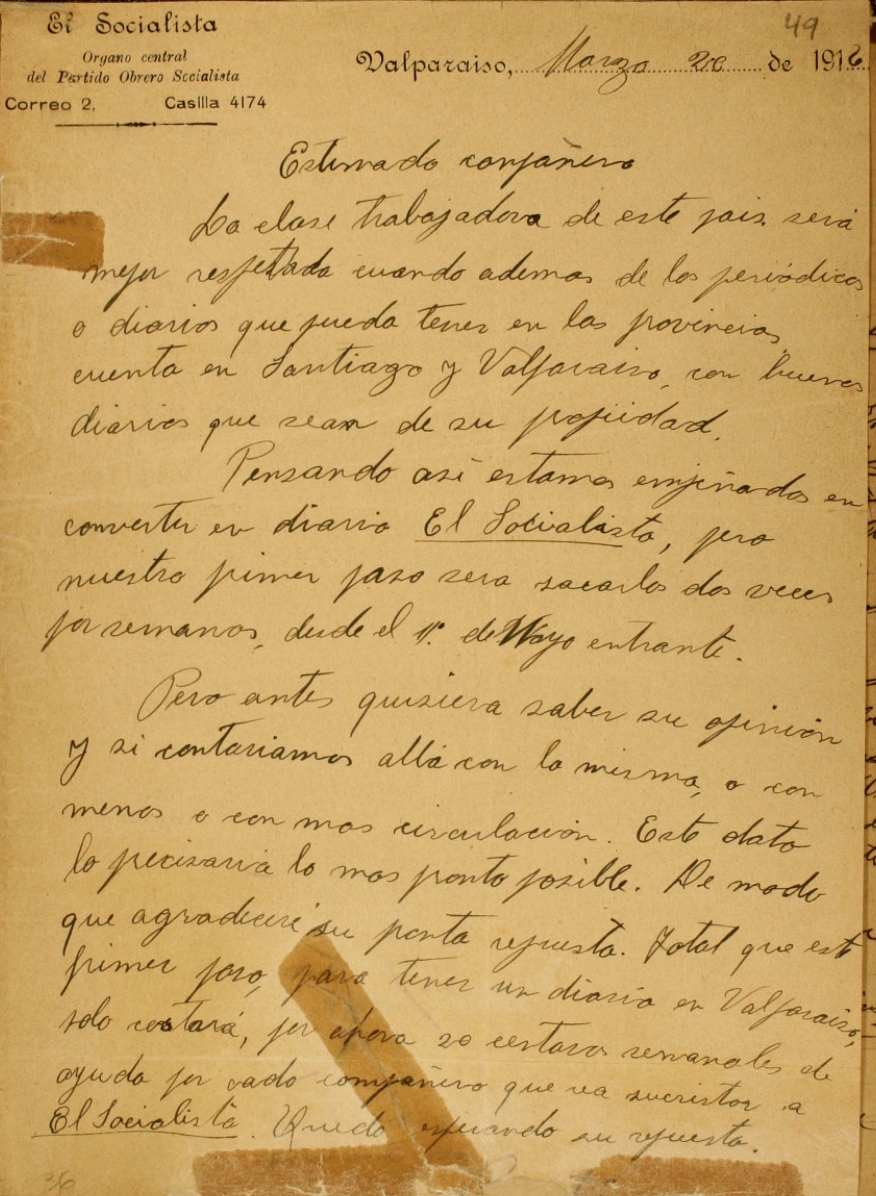 49
El Socialista
Organo central
del Partido Obrero Socialista
Correo 2, Casilla 4174
Valparaiso, Marzo 20 de 1916
Estimado compañero
La clase trabajadora de este pais será
mejor respetada cuando ademas de los periódicos
o diarios que pueda tener en las provincias,
cuenta en Santiago y Valparaiso, con buenos
diarios que sean de su propiedad.
Pensando asi estamos empeñados en
convertir en diario El Socialista, pero
nuestro primer paso sera sacarlos dos veces
por semanas, desde el 1º. de Mayo entrante.
Pero antes quisiera saber su opinión
y si contariamos allá con la misma, o con
menos o con mas circulación. Este dato
lo precisaria lo mas pronto posible. De modo
que agradeceré su pronta respuesta. Total que este
primer paso, para tener un diario en Valparaiso,
solo costará, por ahora 20 centavos semanales de
ayuda por cada compañero que sea sucristor a
El Socialista. Quedo esperando su repuesta.
36